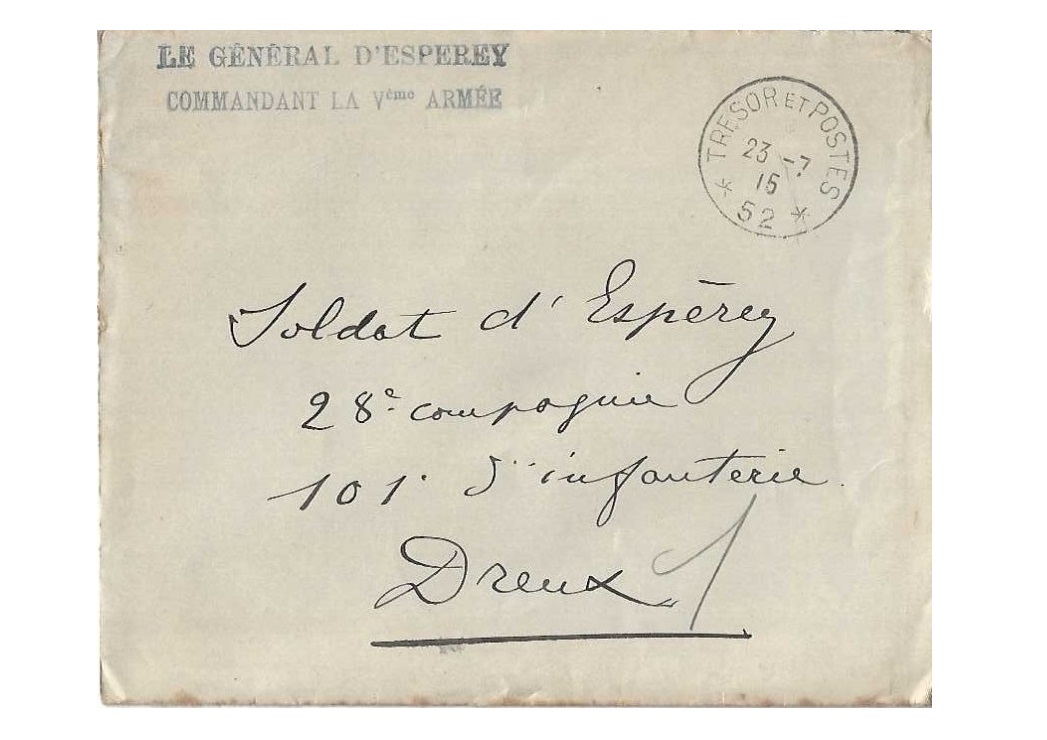 LE GÉNÉRAL D'ESPEREY
COMMANDANT LA Vème ARMÉE
* TRESOR ET POSTES *
23 -7
15
52
Soldat d'Espérey
28e compagnie
101e d'infanterie
Dreux